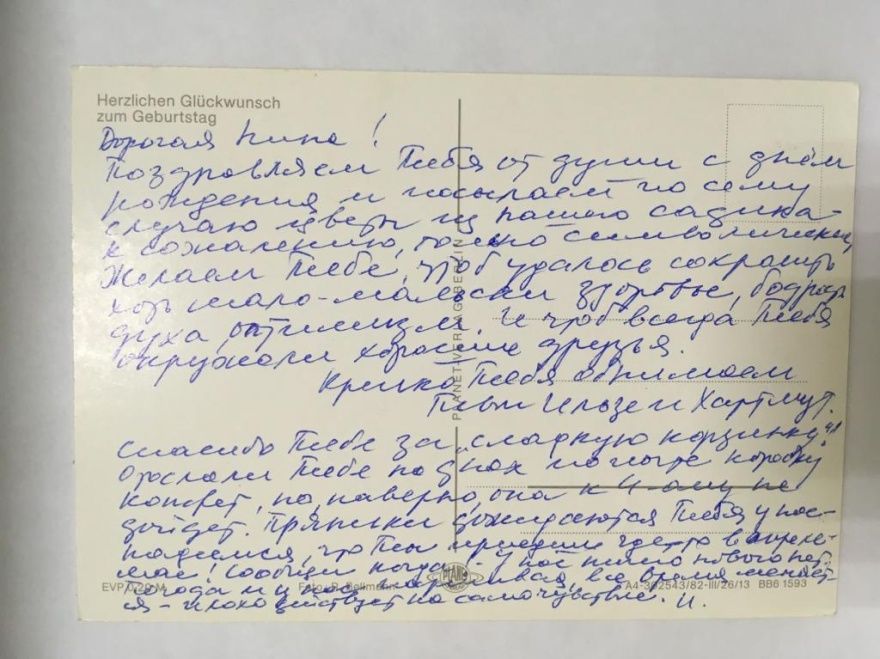 Herzlichen Glückwunsch
zum Geburtstag
Дорогая Нина!
Поздравляем Тебя от души с днём
рождения и посылаем по сему
случаю цветы из нашего садика -
к сожалению, только символически,
Желаем Тебе, чтоб удалось сохранить
хоть мало-мальски здоровье, бодрость
духа, оптимизм. И чтоб всегда Тебя
окружали хорошие друзья.
Крепко Тебя обнимаем
Твои Ильзе и Хартмут.
Спасибо Тебе за „сладкую корзинку"!
Отослали Тебе на днях по почте коробку
конфет, но, наверно, она к 4-ому не
дойдет. Пряники дожидаются Тебя у нас -
надеемся, что Ты приедешь где-то в апреле-
мае! Сообщи когда - у нас ничего нового нет.
Погода и у нас все время меняет-
ся - плохо действует на самочувствие. И.
PLANET-VERLAG BERLIN
PLANET
EVP 0,20 M
Foto: Bellmann
A4-302543/82-III/26/13 BB6 1593